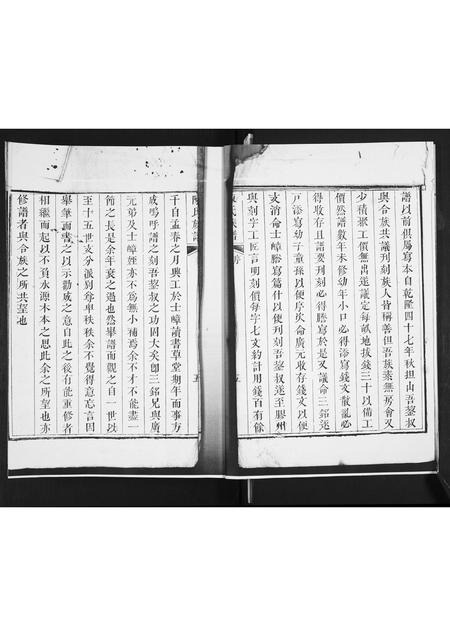 譜以前俱屬寫本自乾隆四十七年秋担由吾
與合族共議刊刻族人皆稱善但吾族素無房會又
少積聚工價無出遂議定每畝地拔錢三十以備工
價然譜數年未修幼年小口必得添寫錢文散亂必
得收存且譜要刊刻必得謄寫於是又議命三銘逐
戸添寫幼子童孫以便序次命廣元收存錢文以便
支消命士嶂謄寫篇什以便刊刻吾叔遂至膠州
與刻字工匠言明刻價每字七文約計用錢百有餘
千自孟春之月興工於士嶂讀書草堂期年而事方
成嗚呼譜之刻吾叔之功固大矣即三銘兄與廣
元弟及士嶂姪亦不爲無小補焉余不才不能盡一
節之長是余年衰之過也然舉譜而觀之自一世以
至十五世支分派別尊卑秩秩余不覺得意忘言因
舉筆而書之以示勸戒之意自此之後有能重修者
相繼而起以不負永源木本之思此余之所望也亦
修譜者與合族之所共望也
陳氏族譜
五
氏族譜
五